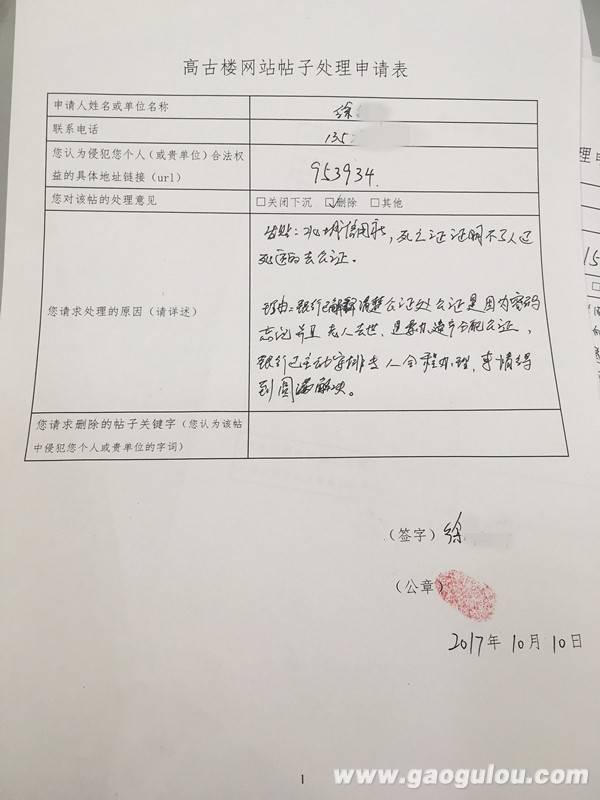 高古楼网站帖子处理申请表
申请人姓名或单位名称 徐
联系电话 135
您认为侵犯您个人（或贵单位）合法权
益的具体地址链接（url） 953934.
您对该帖的处理意见 □关闭下沉 ☑删除 □其他
信用社，死亡证证明不了人已
死还的去公证。
您请求处理的原因（请详述）
理由：银行已解释清楚公证处公证是因为密码
忘记并且老人去世，是要办遗产分配公证，
银行已主动安排专人全程办理，事情得
到圆满解决。
您请求删除的帖子关键字（您认为该帖
中侵犯您个人或贵单位的字词）
（签字）徐
（公章）
2017年10月10日
理
15
1
www.gaogulou.com